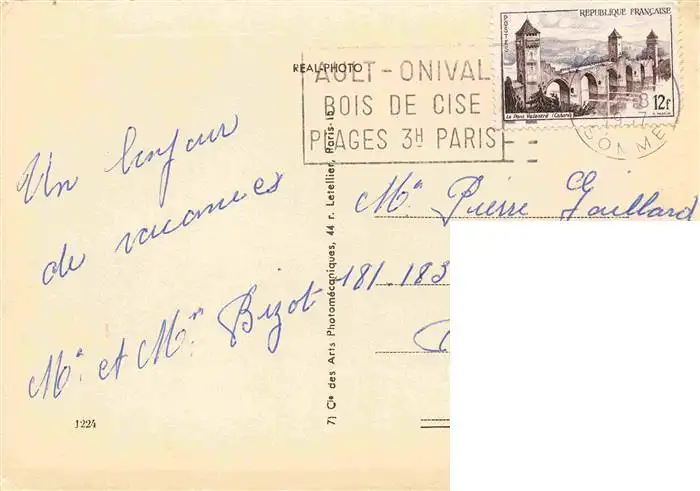 REAL-PHOTO
AULT-ONIVAL
BOIS DE CISE
PLAGES 3H PARIS
REPUBLIQUE FRANÇAISE
POSTES
Le Pont Valentré (Cahors)
12f
SOMME
Un bonjour
de vacances
Mr et Mme Bizot
Mr Pierre Gaillard
181-183
7) Cie des Arts Photomécaniques, 44 r. Letellier, Paris-15
1224